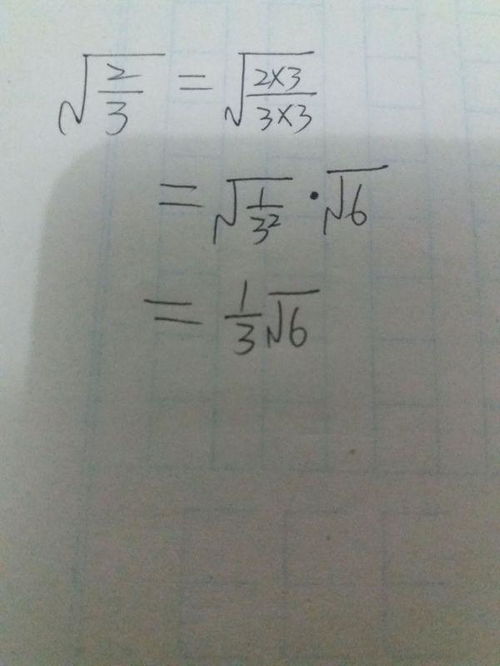 √(2/3) = √((2×3)/(3×3))
= √(1/3²) · √6
= 1/3 √6